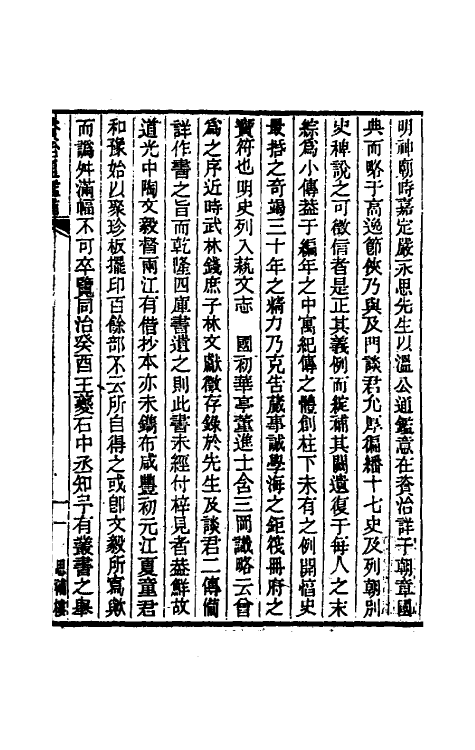 明神廟時嘉定嚴永思先生以溫公通鑑意在資治詳于朝章國
典而略于高逸節俠乃與及門談君允厚徧繙十七史及列朝別
史稗說之可徵信者是正其義例而綻補其闕遺復于每人之末
綜為小傳益于編年之中寓紀傳之體創柱下未有之例開愊史
最括之奇竭三十年之精力乃克告蕆事誠學海之鉅筏冊府之
寶符也明史列入藝文志　國初華亭董進士含三岡識略云曾
為之序近時武林錢庶子林文獻徵存錄於先生及談君二傳備
詳作書之旨而乾隆四庫書遺之則此書未經付梓見者益鮮故
道光中陶文毅督兩江有借抄本亦未鐫布咸豐初元江夏童君
和豫始以聚珍板擺印百餘部不云所自得之或卽文毅所寫歟
而譌舛滿幅不可卒覽同治癸酉王夔石中丞知予有叢書之舉
資治通鑑補
一
思補樓